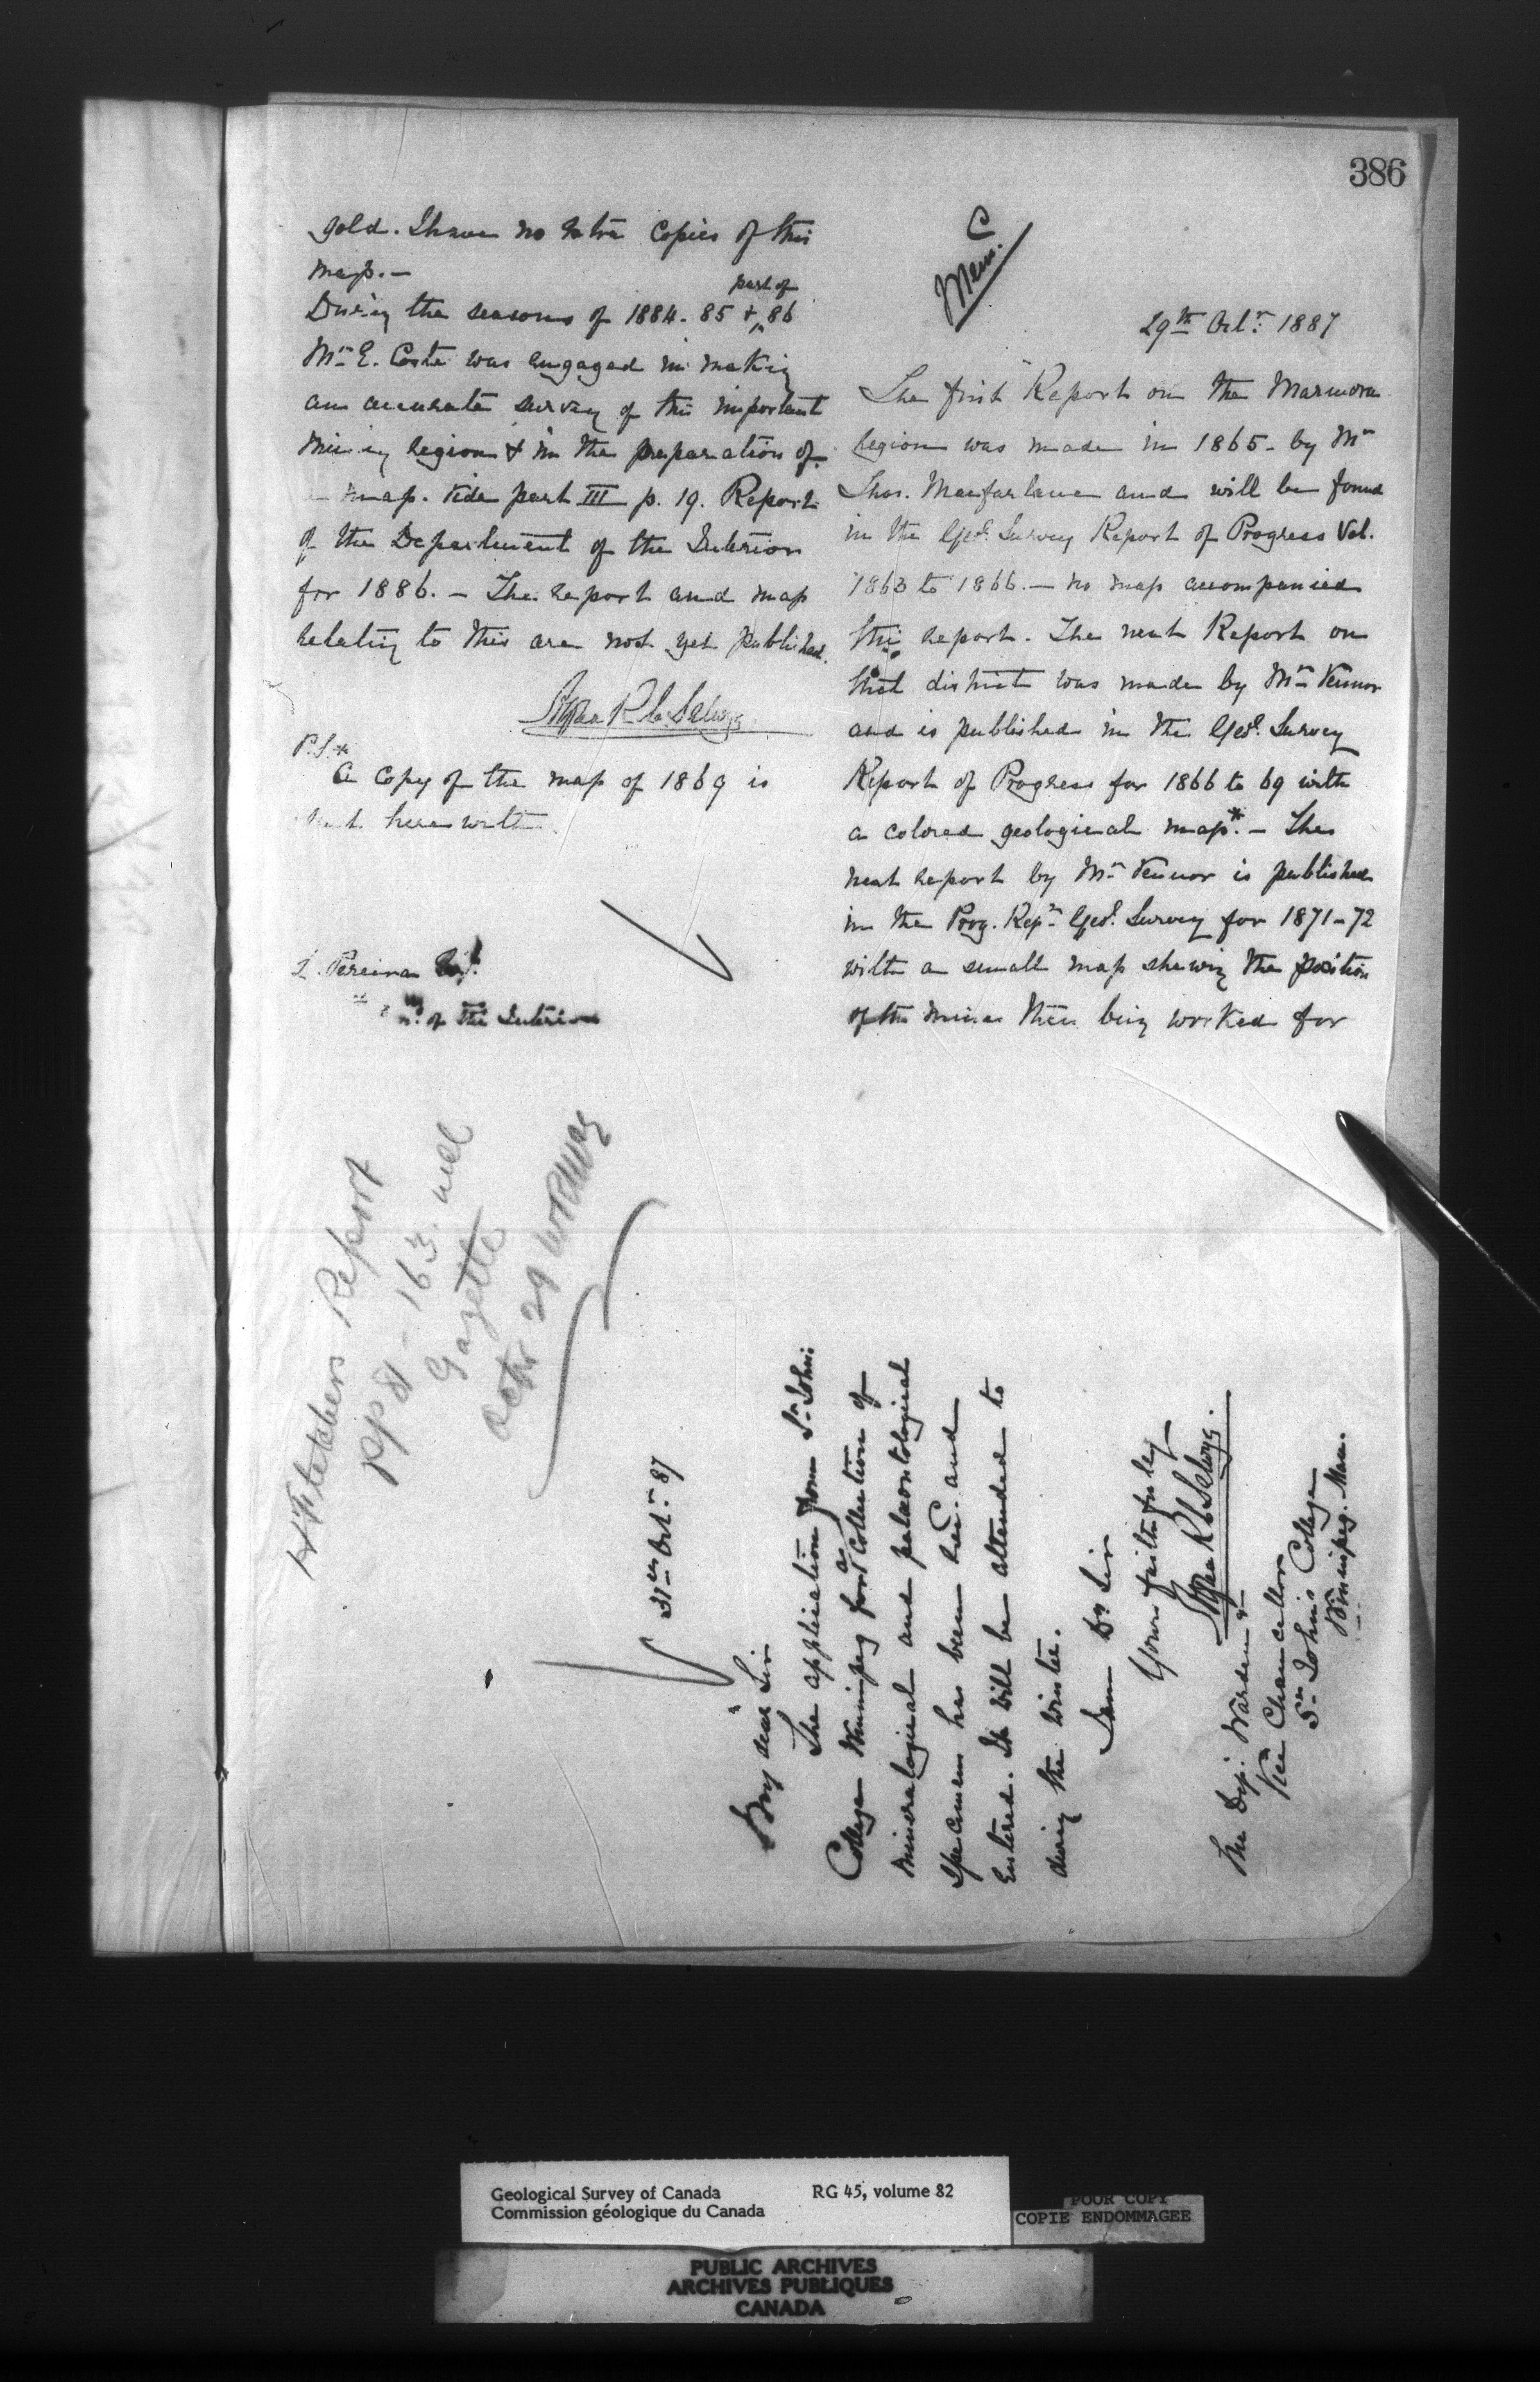 386
Mem. C
29th Octr. 1887
The first Report on the Marmora
region was made in 1865 - by Mr
Thos. Macfarlane and will be found
in the Geol. Survey Report of Progress Vol.
1863 to 1866. — no map accompanied
this report. The next Report on
that district was made by Mr Vennor
and is published in the Geol. Survey
Report of Progress for 1866 to 69 with
a colored geological map*. — The
next report by Mr Vennor is published
in the Prog. Rept Geol. Survey for 1871-72
with a small map shewing the position
of the mines then being worked for
gold. I have no extra copies of this
map. —
During the seasons of 1884. 85 & part of 86
Mr E. Coste was engaged in making
an accurate survey of this important
mining region & in the preparation of
a map. Vide part III p. 19. Report
of the Department of the Interior
for 1886. — The report and map
relating to this are not yet published.
Alfred R C Selwyn
P.S.*
A copy of the map of 1869 is
sent herewith.
Pereira Esq.
of the Interior
H Fletchers Report
pp 81 - 163
Gazette
Octr 29
31st Octr. 87
My dear Sir
The application from St. Johns
College Winnipeg for a collection of
mineralogical and palaeontological
specimens has been recd. and
entered. It will be attended to
during the winter.
I am Dr Sir
Yours faithfully
Alfred R C Selwyn.
The Dep. Warden &
Vice Chancellor
St Johns College
Winnipeg. Man.
Geological Survey of Canada
Commission géologique du Canada
RG 45, volume 82
POOR COPY
COPIE ENDOMMAGEE
PUBLIC ARCHIVES
ARCHIVES PUBLIQUES
CANADA